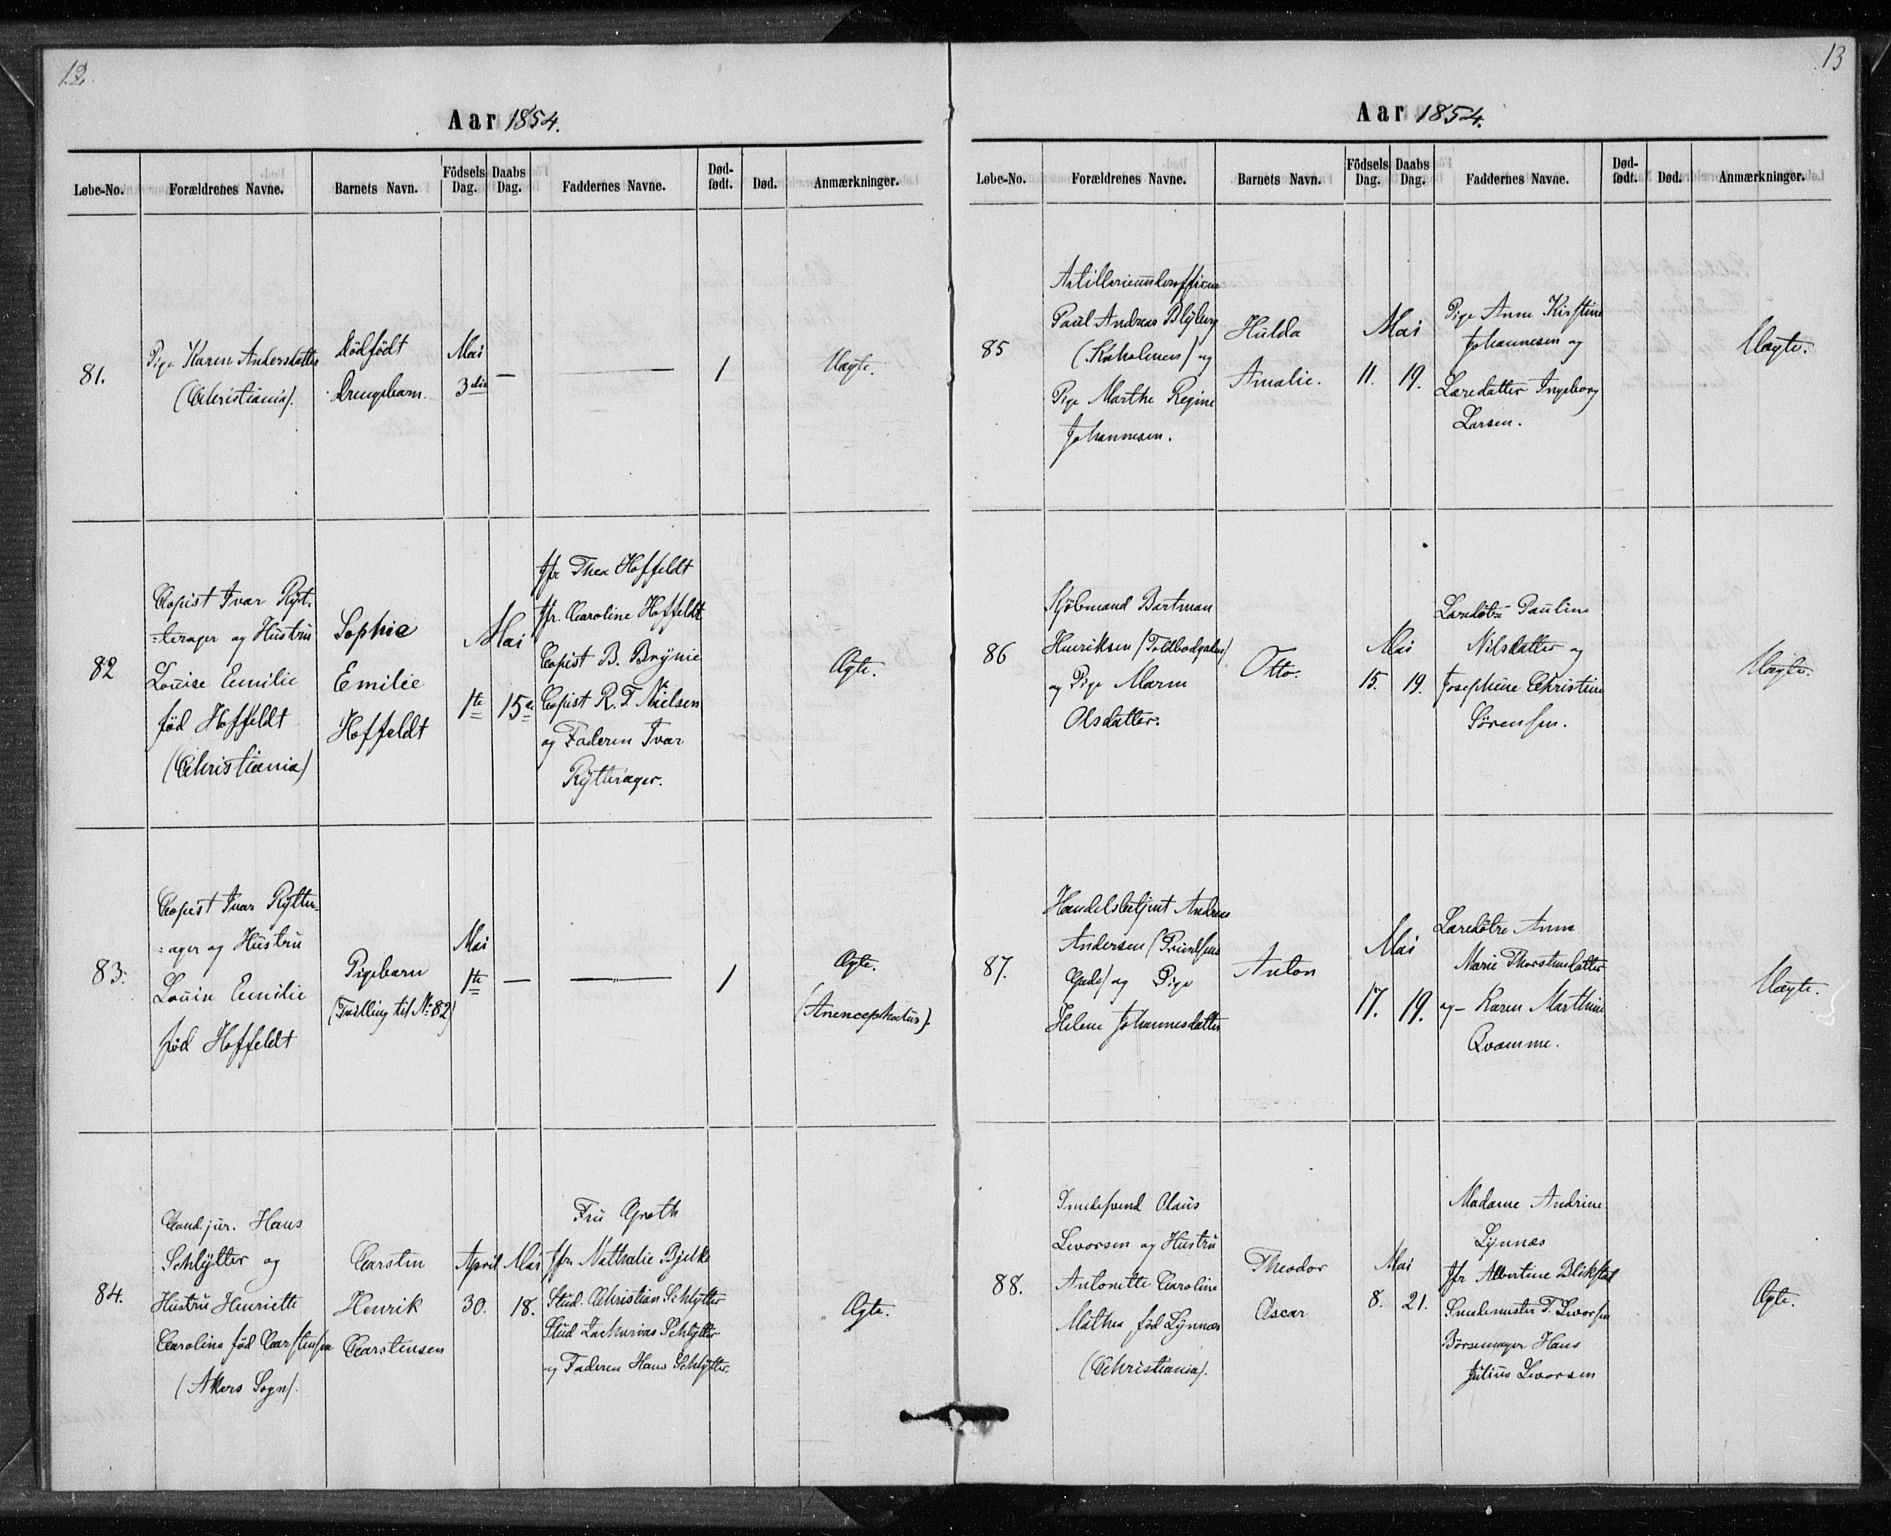 12.
Aar 1854.
Løbe-No.
Forældrenes Navne.
Barnets Navn.
Födsels Dag.
Daabs Dag.
Faddernes Navne.
Død-født.
Død.
Anmærkninger.
81.
Pige Karen Andersdatter
(Christiania).
Dödfödt
Drengebarn.
Mai
3die
—
—
1
Uægte.
82
Copist Ivar Ryt-
-terager og Hustru
Louise Emilie
född Hoffeldt
(Christiania)
Sophie
Emilie
Hoffeldt
Mai
1te
15de
Jfr. Thea Hoffeldt
Jfr. Caroline Hoffeldt
Copist B. Brynie
Copist R. T. Nielsen
og Faderen Ivar
Rytterager.
Ægte.
83.
Copist Ivar Rytter-
-ager og Hustru
Louise Emilie
född Hoffeldt
Pigebarn
(Tvilling til No 82)
Mai
1te
—
—„—
1
Ægte.
(Anencephatus).
84.
Cand. jur. Hans
Schlytter og
Hustru Henriette
Caroline född Carstensen
(Akers Sogn).
Carsten
Henrik
Carstensen
April
30.
Mai
18.
Fru Groth
Jfr. Nathalie Bjelke
Stud. Christian Schlytter
Stud. Zacharias Schlytter
og Faderen Hans Schlytter
Ægte.
13
Aar 1854.
Løbe-No.
Forældrenes Navne.
Barnets Navn.
Födsels Dag.
Daabs Dag.
Faddernes Navne.
Død-født.
Død.
Anmærkninger.
85
Artillerieunderofficer
Paul Andreas Blyberg
og
Pige Marthe Regine
Johannesen.
Hulda
Amalie.
Mai
11.
19.
Pige Anne Kirstine
Johannesen og
Løsedatter Ingeborg
Larsen.
Uægte.
86
Kjöbmand Bartman
Henriksen (Toldbodgaden)
og Pige Maren
Olsdatter.
Otto.
Mai
15.
19.
Pauline
Nilsdatter og
Josephine Christine
Sörensen.
Uægte.
87.
Handelsbetjent Andreas
Andersen (Prindsens
Gade) og Pige
Helene Johannesdatter
Anton
Mai
17.
19.
Anne
Marie Thorstensdatter
og — Karen Marthine
Qvamme.
Uægte.
88.
Smedesvend Claus
Leworsen og Hustru
Antonette Caroline
Mathea född Lynnæs
(Christiania).
Theodor
Oscar
Mai
8.
21.
Madame Andrine
Lynnæs
Jfr Albertine Blikstad
Smedemester T. Leworsen
Børsemager Hans
Julius Leworsen
Ægte.